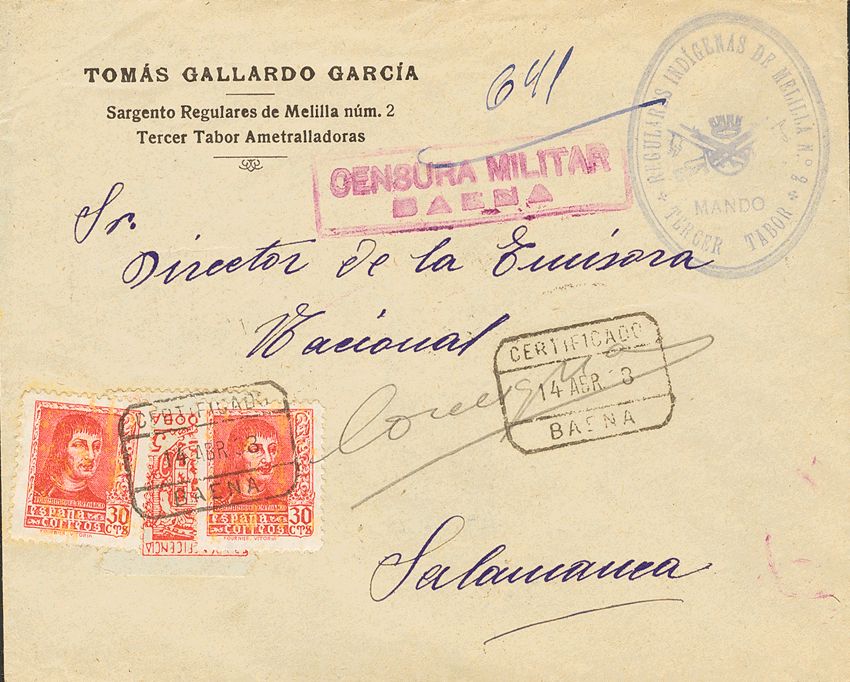 TOMÁS GALLARDO GARCÍA
Sargento Regulares de Melilla núm. 2
Tercer Tabor Ametralladoras
641
REGULARES INDÍGENAS DE MELILLA N.º 2
MANDO
TERCER TABOR
CENSURA MILITAR
BAENA
Sr.
Director de la Emisora
Nacional
CERTIFICADO
14 ABR 3
BAENA
CERTIFICADO
14 ABR 3
BAENA
ESPAÑA 30
CORREOS CTS
FOURNIER. VITORIA
ESPAÑA 30
CORREOS CTS
FOURNIER. VITORIA
Salamanca